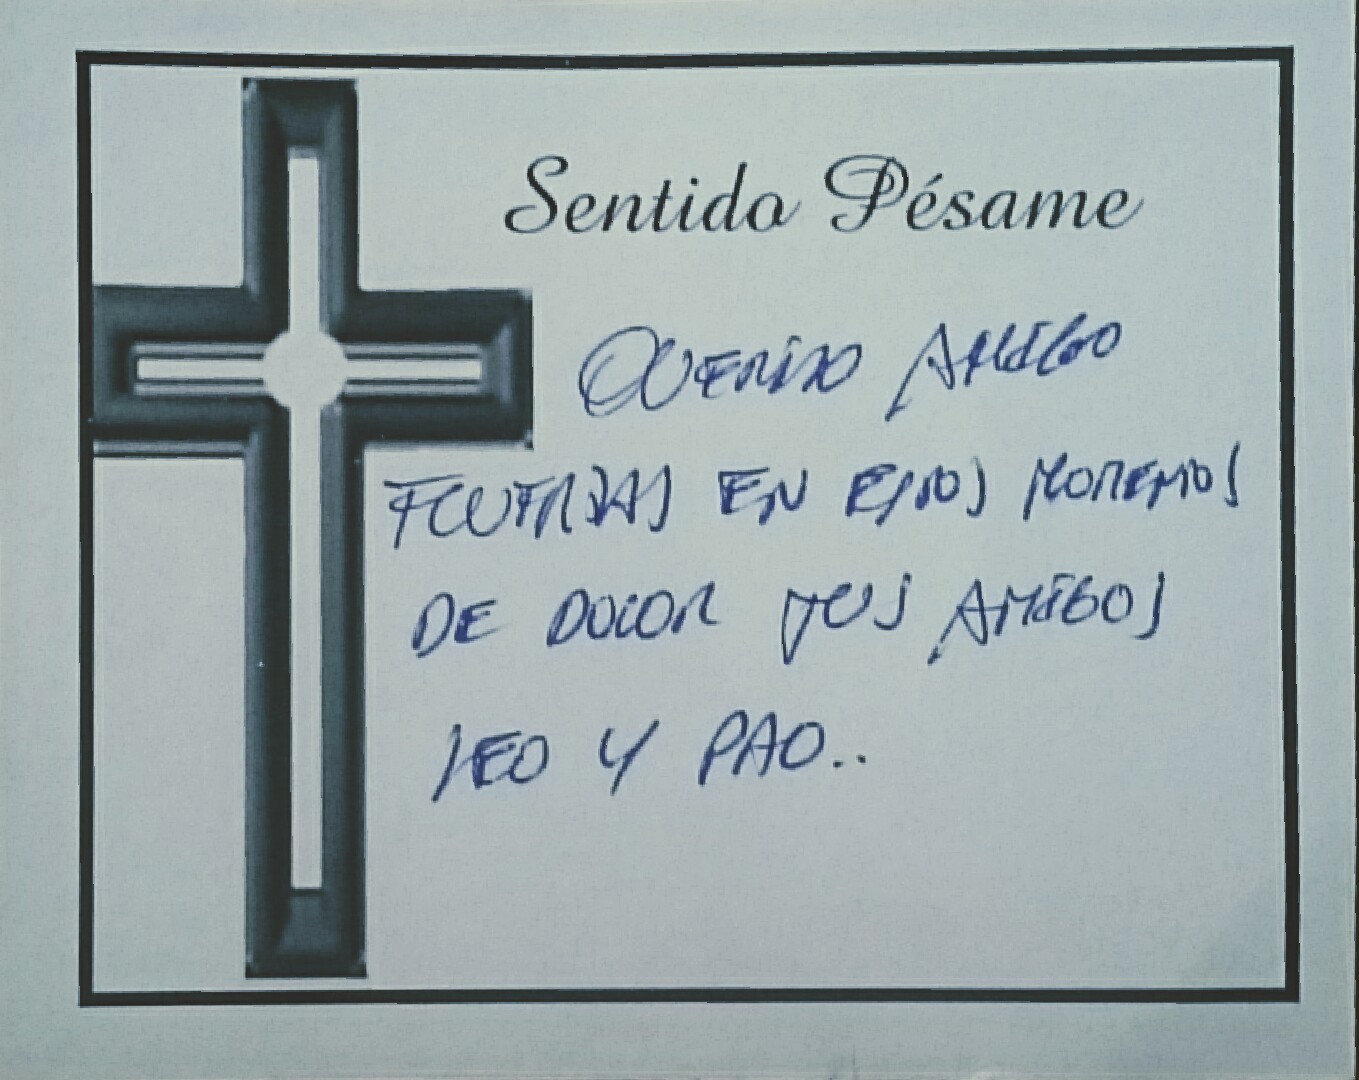 Sentido Pésame
QUERIDO AMIGO
EN ESTOS MOMEMOS
DE DOLOR TUS AMIGOS
LEO Y PAO..